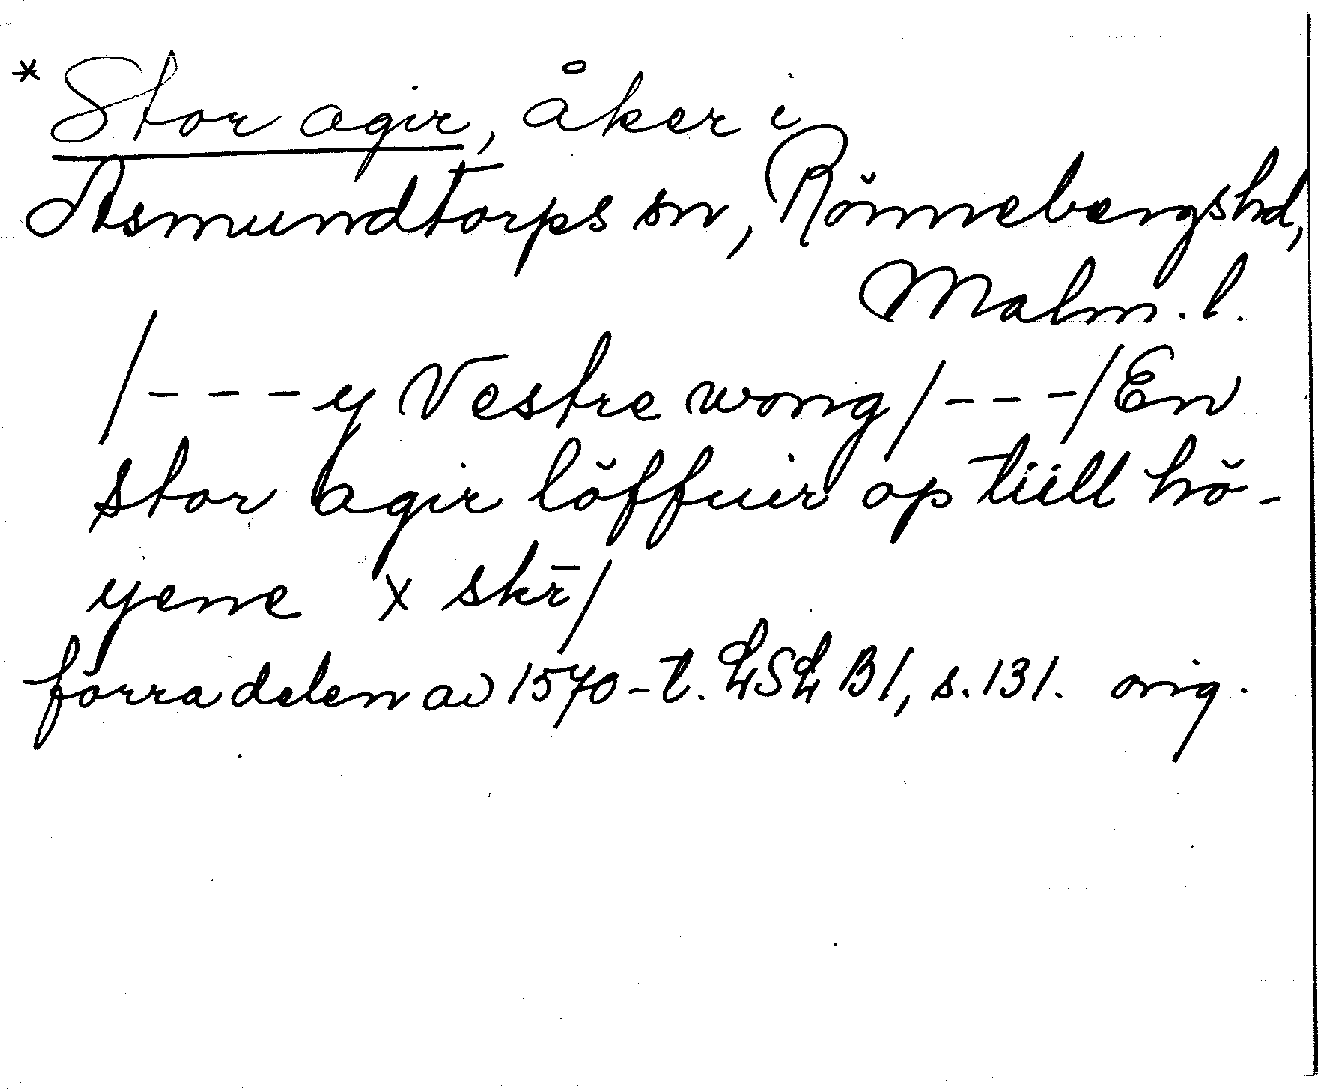 * Stor agir, åker i
Asmundtorps sn, Rönnebergshd,
Malm. l.
/---y Vestre wong/---/En
stor agir löffuir op tiill hö-
yene x skr̄/
förra delen av 1570-t. LSL B1, s. 131. orig.